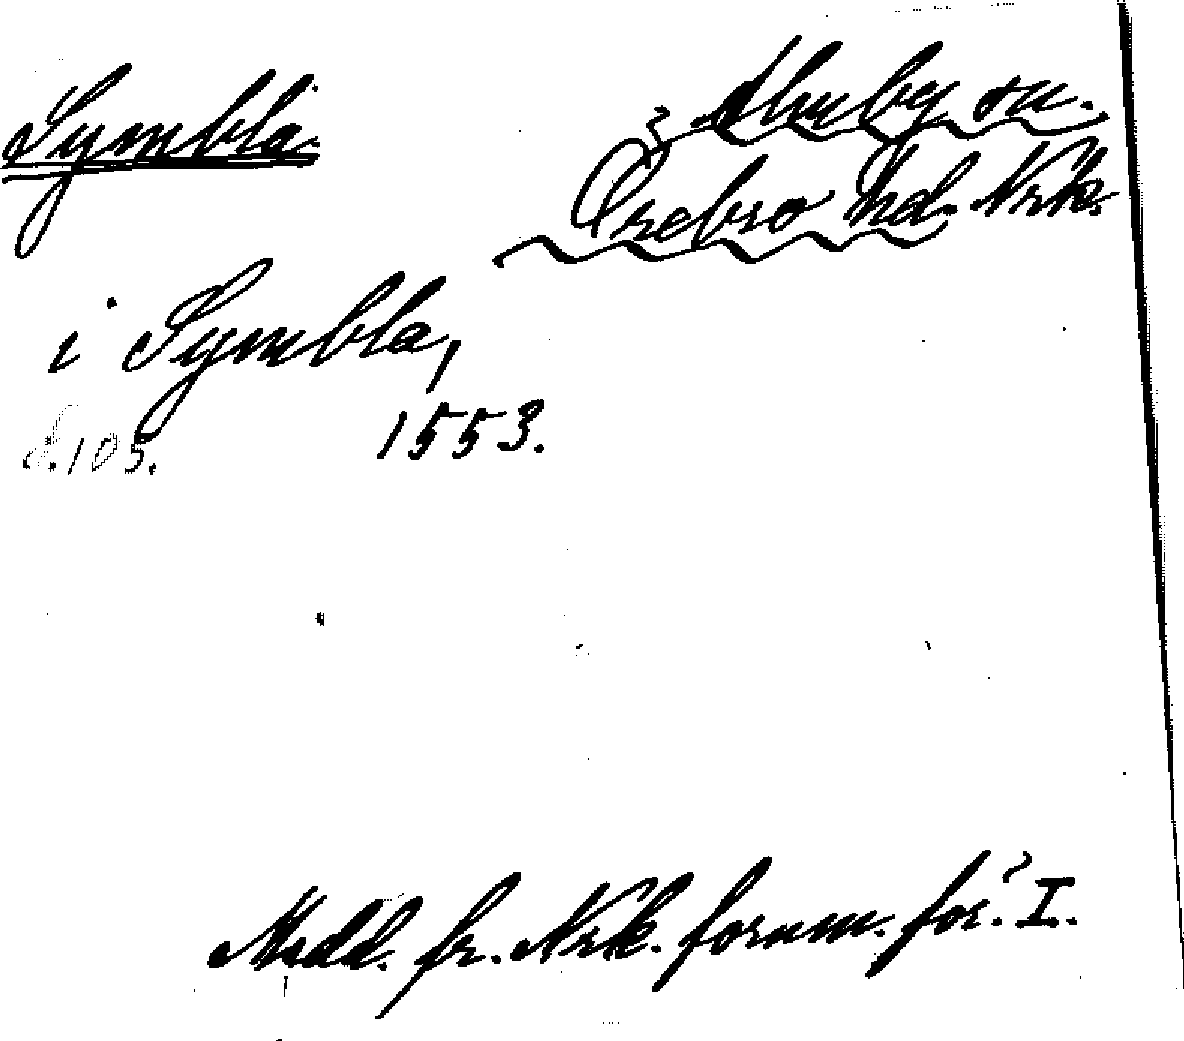 Symbla.
Almby sn.
Örebro hd. Nrk.
i Symbla,
1553.
s. 105.
Medd. fr. Nrk. fornm. för. I.